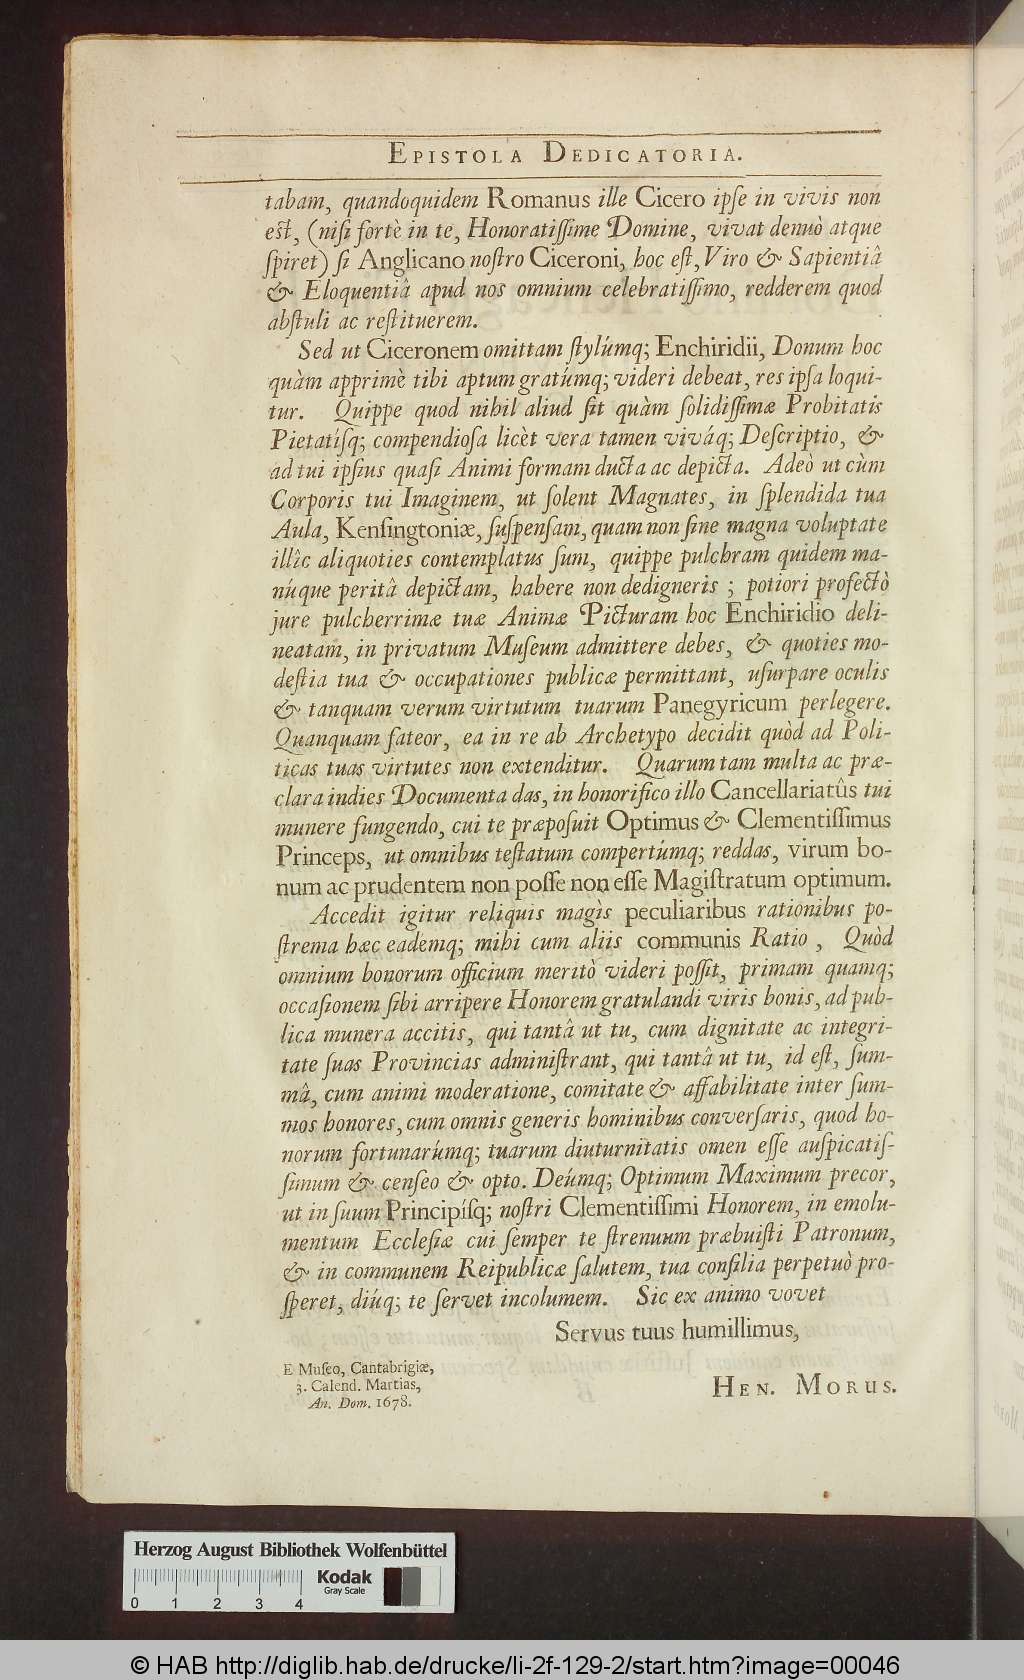 EPISTOLA DEDICATORIA.
tabam, quandoquidem Romanus ille Cicero ipſe in vivis non
eſt, (niſi fortè in te, Honoratiſſime Domine, vivat denuò atque
ſpiret) ſi Anglicano noſtro Ciceroni, hoc eſt, Viro & Sapientiâ
& Eloquentiâ apud nos omnium celebratiſſimo, redderem quod
abſtuli ac reſtituerem.
Sed ut Ciceronem omittam ſtylúmq; Enchiridii, Donum hoc
quàm apprimè tibi aptum gratúmq; videri debeat, res ipſa loqui-
tur. Quippe quod nihil aliud ſit quàm ſolidiſſimæ Probitatis
Pietatíſq; compendioſa licèt vera tamen viváq; Deſcriptio, &
ad tui ipſius quaſi Animi formam ducta ac depicta. Adeò ut cùm
Corporis tui Imaginem, ut ſolent Magnates, in ſplendida tua
Aula, Kenſingtoniæ, ſuſpenſam, quam non ſine magna voluptate
illîc aliquoties contemplatus ſum, quippe pulchram quidem ma-
núque peritâ depictam, habere non dedigneris; potiori profectò
jure pulcherrimæ tuæ Animæ Picturam hoc Enchiridio deli-
neatam, in privatum Muſeum admittere debes, & quoties mo-
deſtia tua & occupationes publicæ permittant, uſurpare oculis
& tanquam verum virtutum tuarum Panegyricum perlegere.
Quanquam fateor, ea in re ab Archetypo decidit quòd ad Poli-
ticas tuas virtutes non extenditur. Quarum tam multa ac præ-
clara indies Documenta das, in honorifico illo Cancellariatûs tui
munere fungendo, cui te præpoſuit Optimus & Clementiſſimus
Princeps, ut omnibus teſtatum compertúmq; reddas, virum bo-
num ac prudentem non poſſe non eſſe Magiſtratum optimum.
Accedit igitur reliquis magìs peculiaribus rationibus po-
ſtrema hæc eademq; mihi cum aliis communis Ratio, Quòd
omnium bonorum officium meritò videri poſſit, primam quamq;
occaſionem ſibi arripere Honorem gratulandi viris bonis, ad pub-
lica munera accitis, qui tantâ ut tu, cum dignitate ac integri-
tate ſuas Provincias adminiſtrant, qui tantâ ut tu, id eſt, ſum-
mâ, cum animi moderatione, comitate & affabilitate inter ſum-
mos honores, cum omnis generis hominibus converſaris, quod ho-
norum fortunarúmq; tuarum diuturnitatis omen eſſe auſpicatiſ-
ſimum & cenſeo & opto. Deúmq; Optimum Maximum precor,
ut in ſuum Principíſq; noſtri Clementiſſimi Honorem, in emolu-
mentum Eccleſiæ cui ſemper te ſtrenuum præbuiſti Patronum,
& in communem Reipublicæ ſalutem, tua conſilia perpetuò pro-
ſperet, diúq; te ſervet incolumem. Sic ex animo vovet
Servus tuus humillimus,
E Muſeo, Cantabrigiæ,
3. Calend. Martias,
An. Dom. 1678.
HEN. MORUS.
Herzog August Bibliothek Wolfenbüttel
Kodak
Gray Scale
0 1 2 3 4
© HAB http://diglib.hab.de/drucke/li-2f-129-2/start.htm?image=00046